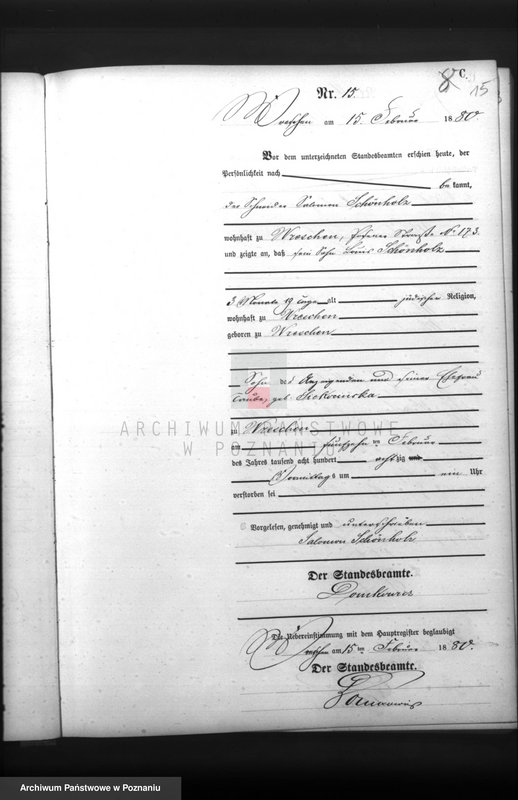 8 C.
15
Nr. 15.
Wreschen am 15. Februar 1880.
Vor dem unterzeichneten Standesbeamten erschien heute, der
Persönlichkeit nach
bekannt,
der Schneider Salomon Schönholz
wohnhaft zu Wreschen, Posener Straße No 173
und zeigte an, daß sein Sohn Louis Schönholz
3 Monate 19 Tage alt jüdischer Religion,
wohnhaft zu Wreschen
geboren zu Wreschen
Sohn des Anzeigenden und seiner Ehefrau
geb.
zu Wreschen
am fünfzehn ten Februar
des Jahres tausend acht hundert achtzig und
Vormittags um ein Uhr
verstorben sei
Vorgelesen, genehmigt und unterschrieben
Salomon Schönholz
Der Standesbeamte.
Die Uebereinstimmung mit dem Hauptregister beglaubigt
Wreschen am 15 ten Februar 1880.
Der Standesbeamte.
ARCHIWUM PAŃSTWOWE
W POZNANIU
Archiwum Państwowe w Poznaniu